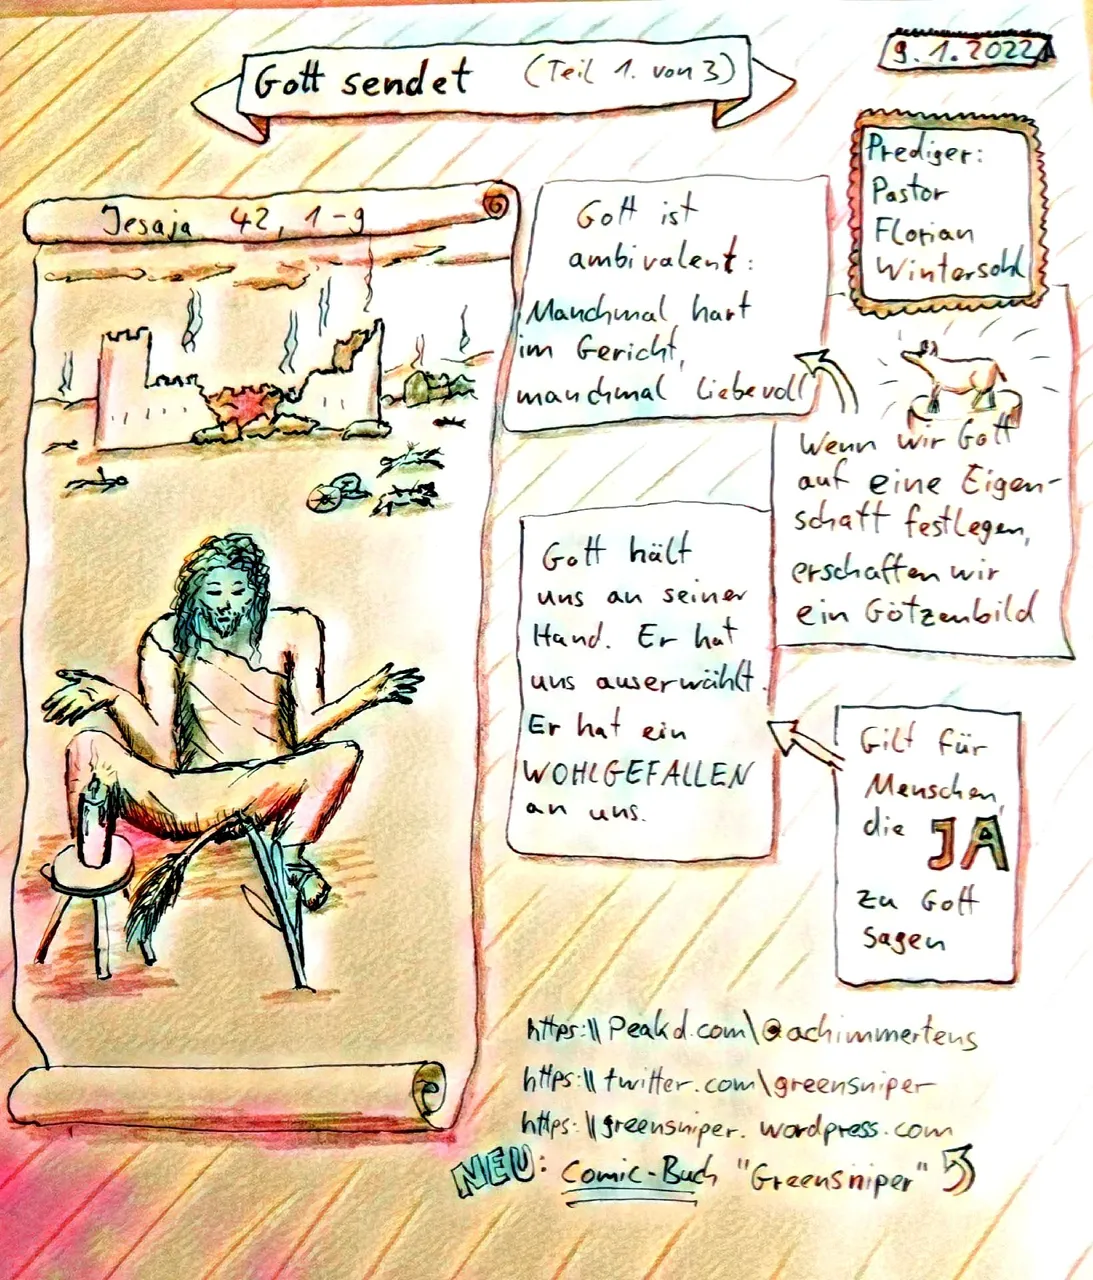 Gott sendet (Teil 1. von 3)
9.1.2022
Prediger:
Pastor
Florian
Wintersohl
Jesaja 42, 1-9
Gott ist
ambivalent:
Manchmal hart
im Gericht,
manchmal liebevoll
Wenn wir Gott
auf eine Eigen-
schaft festlegen,
erschaffen wir
ein Götzenbild
Gott hält
uns an seiner
Hand. Er hat
uns auserwählt.
Er hat ein
WOHLGEFALLEN
an uns.
Gilt für
Menschen,
die JA
zu Gott
sagen
https:\\Peakd.com\@achimmertens
https:\\twitter.com\greensniper
https:\\greensniper.wordpress.com
NEU: Comic-Buch "Greensniper"